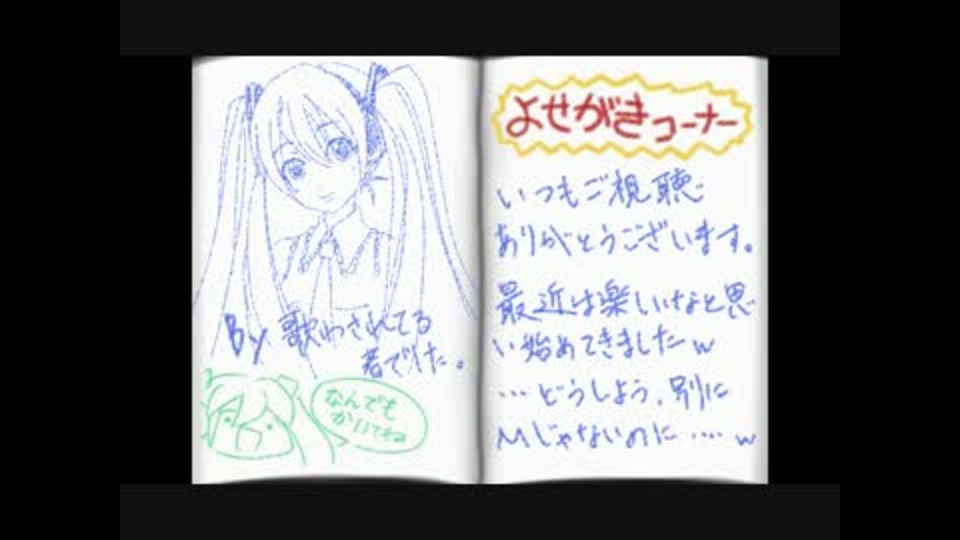 By 歌わされてる
者でした。
なんでも
かいてね
よせがきコーナー
いつもご視聴
ありがとうございます。
最近は楽しいなと思
い始めてきましたw
…どうしよう、別に
Mじゃないのに……w